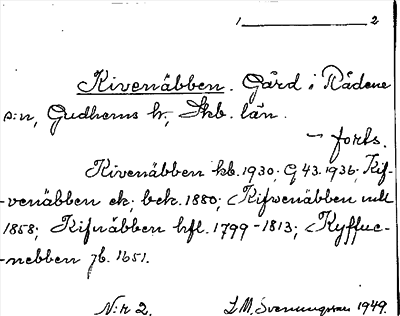 1 ____ 2
Kivenäbben. Gård i Rådene
s:n, Gudhems h., Skb. län.
– forts.
Kivenäbben kb. 1930; G 43. 1936; Kif-
-venäbben ek. bek. 1880; Kifvenäbben
1858; Kifnäbben hfl. 1799-1813; Kyffue-
-nebben jb. 1651.
N:r 2. Svenungsson 1949.